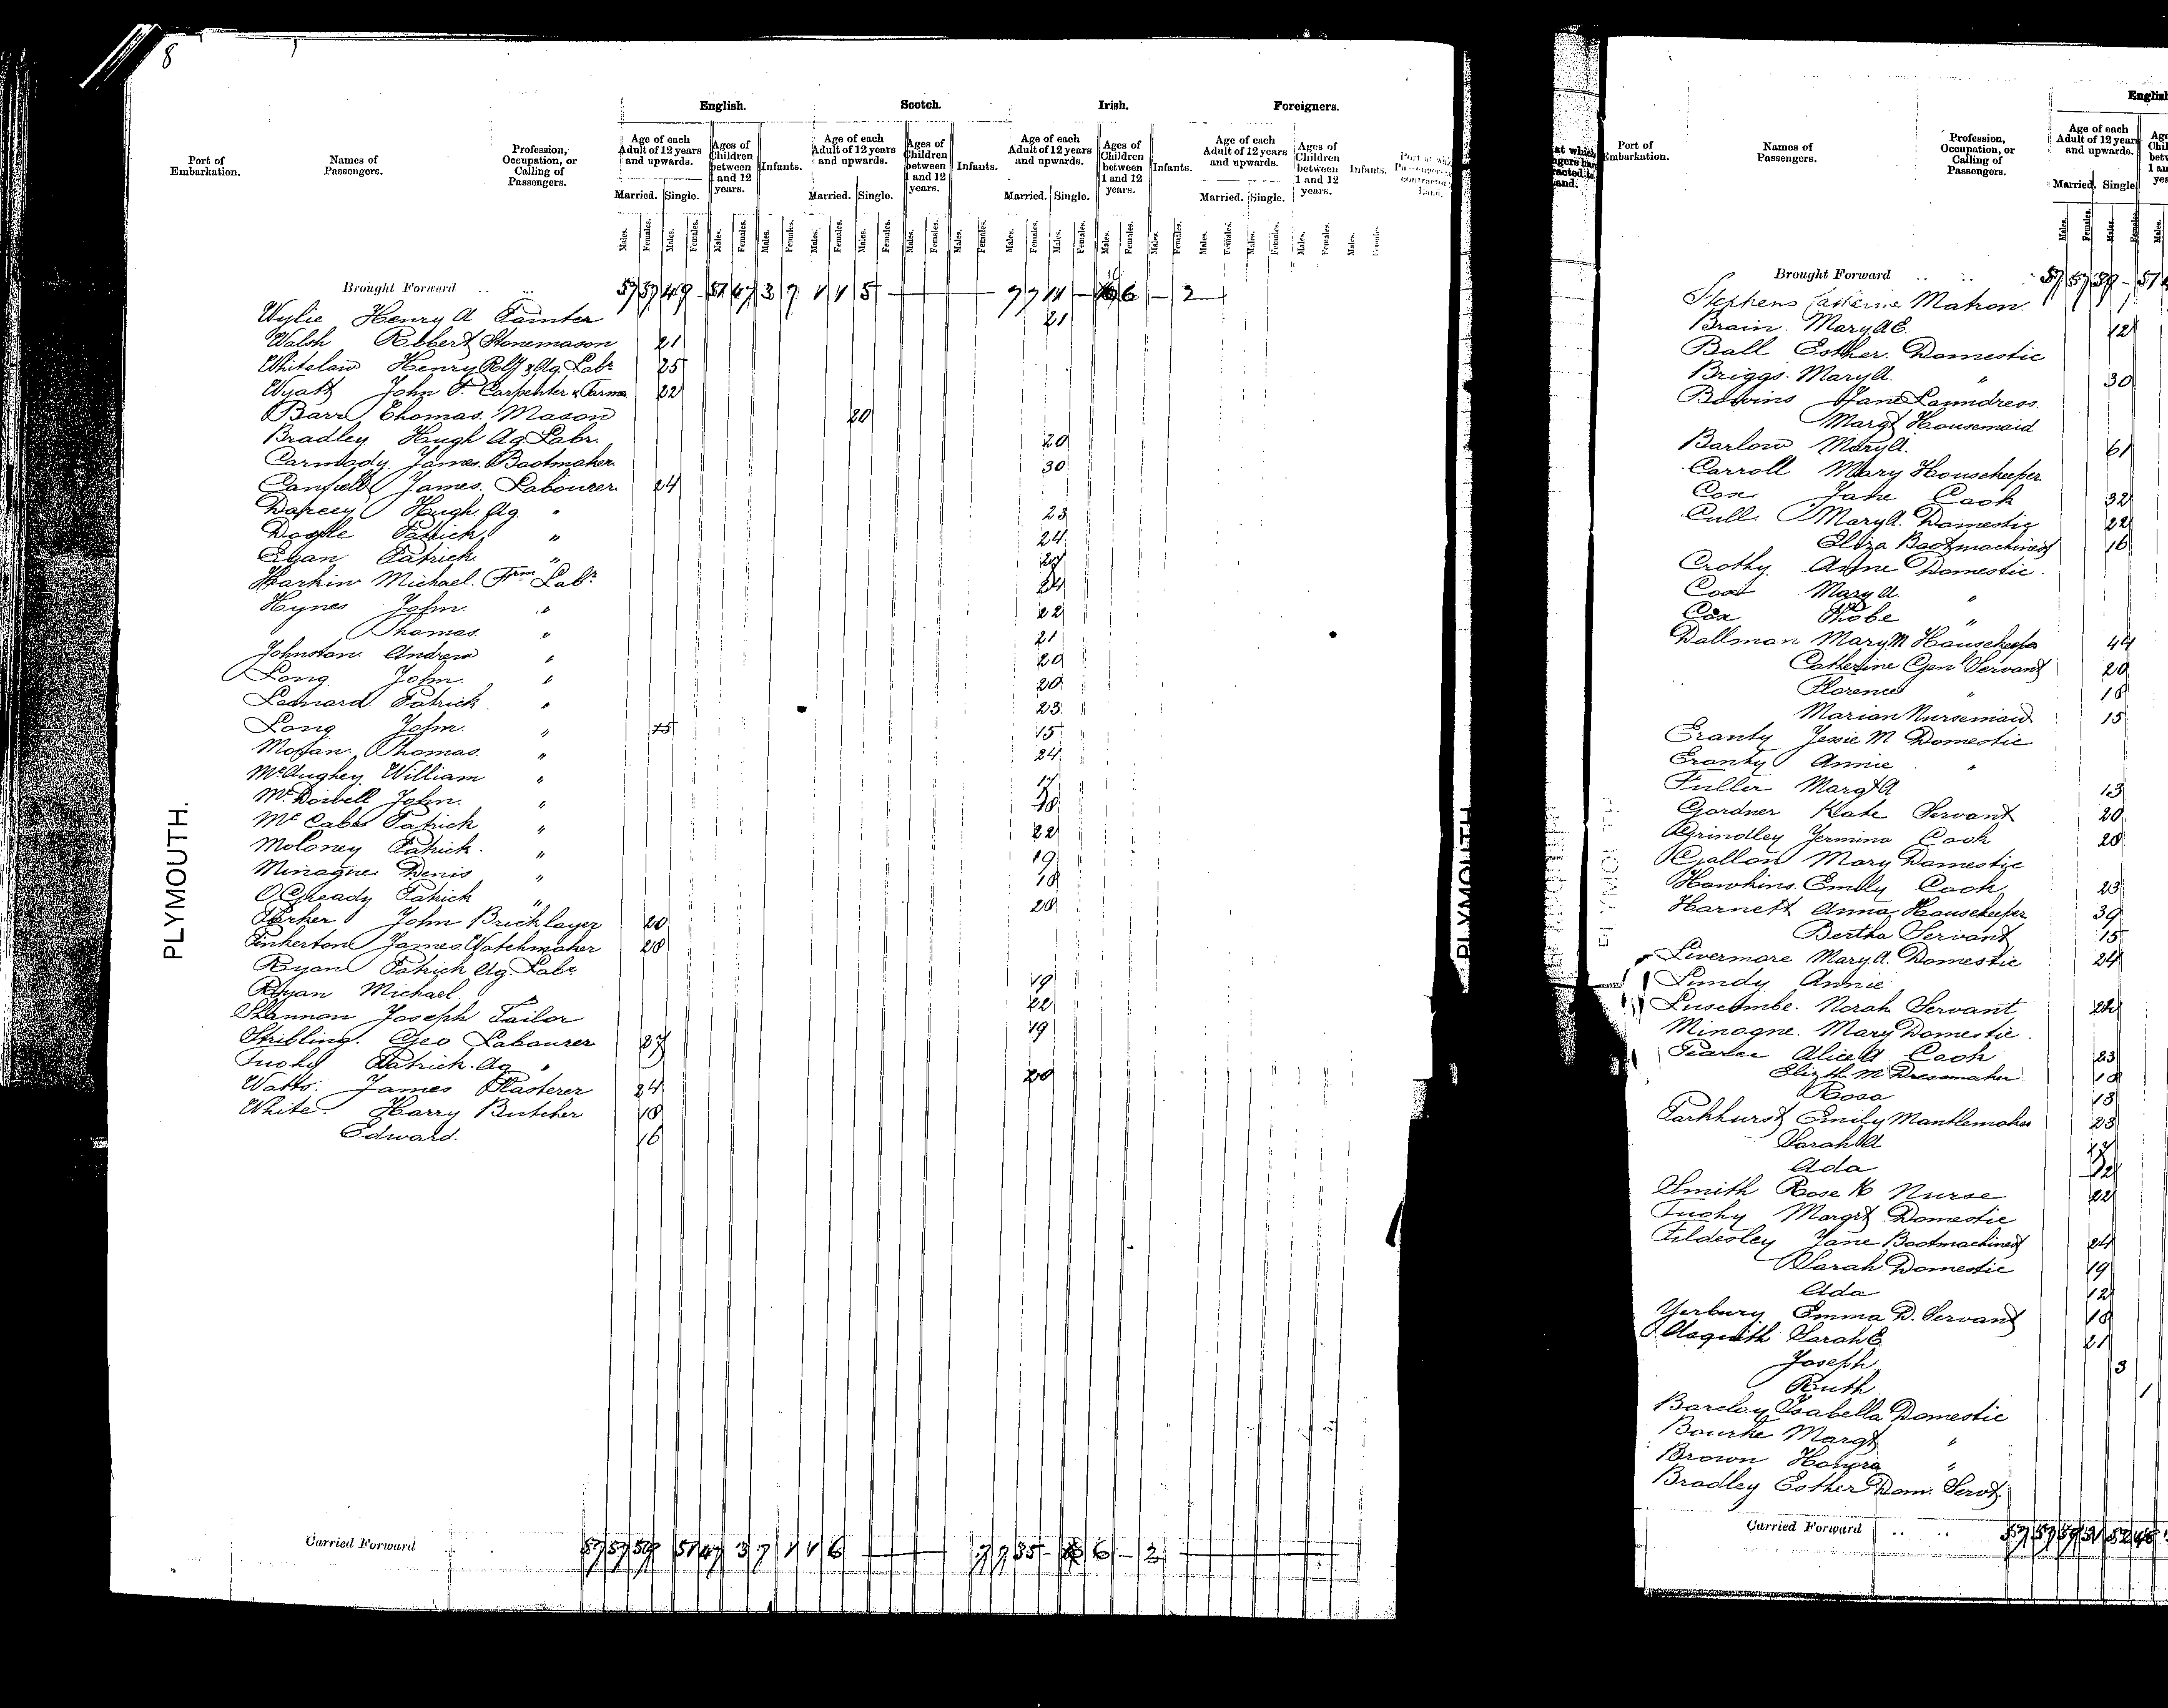 8
English. Scotch. Irish. Foreigners.
Port of Embarkation. Names of Passengers. Profession, Occupation, or Calling of Passengers.
Age of each Adult of 12 years and upwards. Ages of Children between 1 and 12 years. Infants. Age of each Adult of 12 years and upwards. Ages of Children between 1 and 12 years. Infants. Age of each Adult of 12 years and upwards. Ages of Children between 1 and 12 years. Infants. Age of each Adult of 12 years and upwards. Ages of Children between 1 and 12 years. Infants.
Married. Single. Married. Single. Married. Single. Married. Single.
Males. Females. Males. Females. Males. Females. Males. Females. Males. Females. Males. Females. Males. Females. Males. Females. Males. Females. Males. Females. Males. Females. Males. Females. Males. Females. Males. Females. Males. Females. Males. Females.
PLYMOUTH.
Brought Forward 57 57 49 - 51 47 3 7 1 1 5 7 7 11 - 6 - 2
Wylie Henry A Painter 21
Walsh Robert Stonemason 21
Whitelaw Henry Ag Labr 25
Wyatt John F. Carpenter & Farmer 22
Barr Thomas. Mason 20
Bradley Hugh Ag. Labr. 20
Carmody James. Bootmaker 30
Canfield James. Labourer 24
Darcey Hugh. Ag " 23
Doyle Patrick " 24
Egan Patrick " 27
Harkin Michael. Frm Labr 24
Hynes John " 22
Thomas " 21
Johnston Andrew " 20
Long John. " 20
Leonard Patrick " 23
Long John " 15 15
Moran Thomas. " 24
McAughey William " 17
John. " 18
McCabe Patrick " 22
Moloney Patrick. " 19
Minogue Denis " 18
O'Gready Patrick " 28
Parker John Bricklayer 20
Pinkerton James Watchmaker 28
Ryan Patrick Ag. Labr 19
Ryan Michael " 22
Shannon Joseph Tailor 19
Stribling. Geo Labourer 27
Tuohy Patrick. Ag " 20
Watts. James Plasterer 24
White. Harry Butcher 18
Edward. 16
Carried Forward 57 57 59 51 47 3 7 1 1 6 7 7 35 - 6 - 2
PLYMOUTH
Port of Embarkation. Names of Passengers. Profession, Occupation, or Calling of Passengers.
Age of each Adult of 12 years and upwards.
Married. Single
Males. Females. Males. Females.
Brought Forward 57 57 59 - 51
Stephens Catherine Matron.
Brain. Mary A E. 12
Ball Esther. Domestic
Briggs. Mary A. " 30
Jane Laundress.
Margt Housemaid
Barlow Mary A. 61
Carroll Mary Housekeeper
Cox Jane Cook 32
Cull Mary A. Domestic 22
Eliza Bootmachinest 16
Crothy Anne Domestic.
Mary A. "
Cox Phobe "
Dallman Mary M Housekeeper 44
Catherine Gen Servant 20
Florence " 18
Marian Nursemaid 15
Franty Jessie M Domestic
Franty Annie "
Fuller Margt A 13
Gardner Kate Servant 20
Grindley Jermina Cook 28
Gallon Mary Domestic
Hawkins. Emily Cook 23
Harnett Anna Housekeeper 39
Bertha Servant 15
Livermore Mary A. Domestic 24
Lundy Annie
Luscombe. Norah Servant
Minogne. Mary Domestic.
Alice A Cook 23
Elizth M Dressmaker 18
Rosa 13
Parkhurst Emily Mantlemaker 23
Sarah A 17
Ada 12
Smith Rose H Nurse 22
Tuohy Margt Domestic
Tildesley Jane Bootmachinest 24
Sarah Domestic 19
Ada 12
Yerbury. Emma D. Servant 18
Asquith Sarah E. 21
Joseph 3
Ruth 1
Barclay Isabella Domestic
Bourke Margt "
Brown Honora "
Bradley Esther Dom. Servt.
Carried Forward 57 57 59 31 52 48